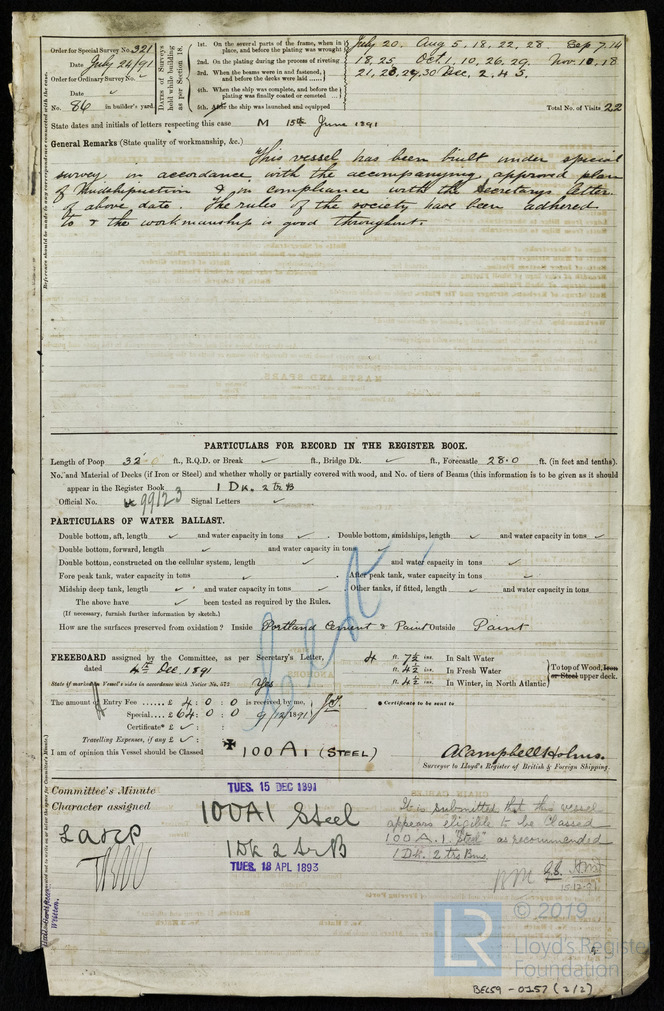 Order for Special Survey No. 321
Date July 24/91
Order for Ordinary Survey No. ✓
Date ✓
No. 86 in builder's yard.
DATES of Surveys held while building as per Section 18.
1st. On the several parts of the frame, when in place, and before the plating was wrought
2nd. On the plating during the process of riveting
3rd. When the beams were in and fastened, and before the decks were laid
4th. When the ship was complete, and before the plating was finally coated or cemented
5th. After the ship was launched and equipped
July 20. Aug 5, 18, 22, 28. Sep 7, 14
18, 25. Oct 1, 10, 26, 29. Nov. 10, 18
21, 28, 29, 30 Dec, 2, 4, 5.
Total No. of Visits 22
State dates and initials of letters respecting this case M 15th June 1891
General Remarks (State quality of workmanship, &c.)
This vessel has been built under special
survey in accordance with the accompanying approved plan
of Midship section & in compliance with the Secretarys letter
of above date. The rules of the society have been adhered
to & the workmanship is good throughout.
PARTICULARS FOR RECORD IN THE REGISTER BOOK.
Length of Poop 32.0 ft., R.Q.D. or Break ✓ ft., Bridge Dk. ✓ ft., Forecastle 28.0 ft. (in feet and tenths).
No. and Material of Decks (if Iron or Steel) and whether wholly or partially covered with wood, and No. of tiers of Beams (this information is to be given as it should
appear in the Register Book 1 Dk. 2 tr B
Official No. 99123 Signal Letters ✓
PARTICULARS OF WATER BALLAST.
Double bottom, aft, length ✓ and water capacity in tons ✓ . Double bottom, amidships, length ✓ and water capacity in tons ✓
Double bottom, forward, length ✓ and water capacity in tons ✓
Double bottom, constructed on the cellular system, length ✓ and water capacity in tons ✓
Fore peak tank, water capacity in tons ✓ . After peak tank, water capacity in tons ✓
Midship deep tank, length ✓ and water capacity in tons ✓ . Other tanks, if fitted, length ✓ and water capacity in tons
The above have ✓ been tested as required by the Rules.
(If necessary, furnish further information by sketch.)
How are the surfaces preserved from oxidation? Inside Portland Cement & Paint Outside Paint
FREEBOARD assigned by the Committee, as per Secretary's Letter, 4 ft. 7½ ins. In Salt Water
dated 4th Dec. 1891 ft. 4½ ins. In Fresh Water
ft. 4½ ins. In Winter, in North Atlantic
To top of Wood, Iron or Steel upper deck.
State if marked on Vessel's sides in accordance with Notice No. 572 Yes
The amount of Entry Fee £ 4 : 0 : 0 is received by me,
Special £ 64 : 0 : 0 9/12/1891
Certificate* £ ✓
* Certificate to be sent to
Travelling Expenses, if any £ ✓
I am of opinion this Vessel should be Classed ✠ 100 A1 (STEEL)
A Campbell Holms.
Surveyor to Lloyd's Register of British & Foreign Shipping.
Committee's Minute TUES. 15 DEC 1891
Character assigned 100A1 Steel
1 Dk 2 tr B
TUES. 18 APL 1893
It is submitted that this vessel
appears eligible to be Classed
100 A.1. "Steel" as recommended
1 Dk. 2 trs Bms.
15.12.91
Written.
LR
© 2019
Lloyd's Register
Foundation
BEL59 - 0157 (2/2)